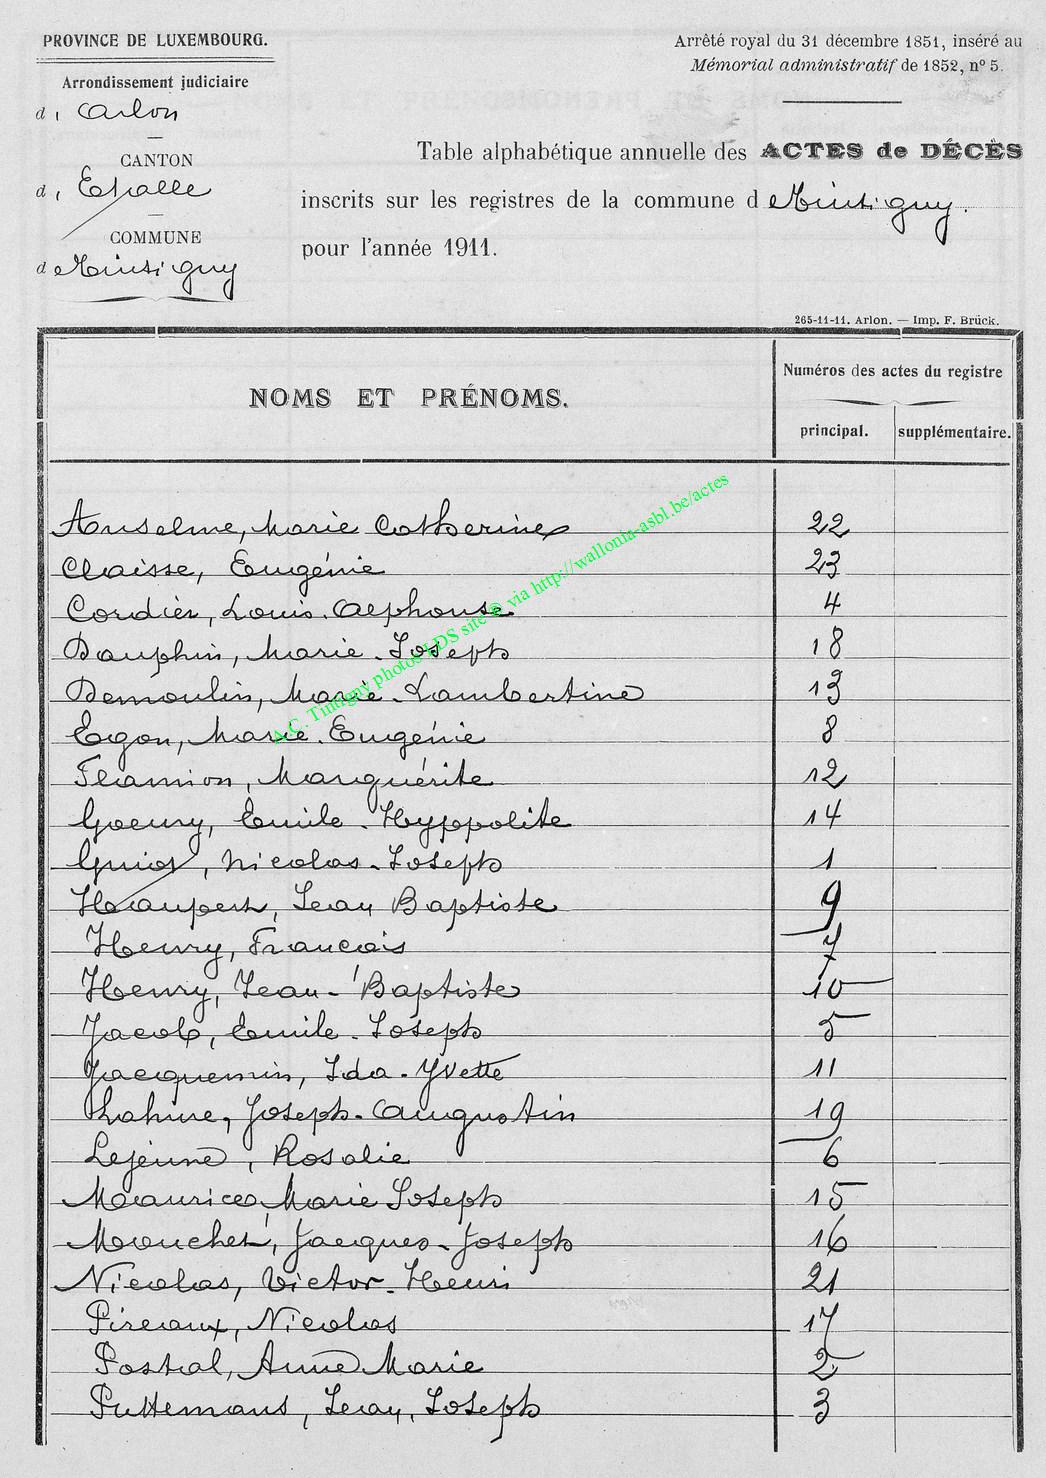 PROVINCE DE LUXEMBOURG.
Arrêté royal du 31 décembre 1851, inséré au
Mémorial administratif de 1852, nº 5.
Arrondissement judiciaire
d' Arlon
CANTON
d' Etalle
COMMUNE
d Tintigny
Table alphabétique annuelle des ACTES de DÉCÈS
inscrits sur les registres de la commune d Tintigny.
pour l'année 1911.
265-11-11. Arlon. — Imp. F. Brück.
NOMS ET PRÉNOMS.
Numéros des actes du registre
principal. supplémentaire.
Anselme, Marie Catherine 22
Claisse, Eugénie 23
Cordier, Louis. Alphonse 4
Dauphin, Marie-Joseph 18
Demoulin, Marie-Lambertine 13
Egon, Marie. Eugénie 8
Flamion, Marguérite 12
Goeury, Emile-Hyppolite 14
, Nicolas-Joseph 1
Haupert, Jean Baptiste 9
Henry, Francois 7
Henry, Jean-Baptiste 10
Jacob, Emile-Joseph 5
Jacquemin, Ida-Yvette 11
Lahure, Joseph-Augustin 19
Lejeune, Rosalie 6
Maurice, Marie Joseph 15
Mouchet, Jacques-Joseph 16
Nicolas, Victor-Henri 21
Pireaux, Nicolas 17
Postal, Anne Marie 2
Puttemans, Jean, Joseph 3
A.C. Tintigny photos LDS site © via http://wallonia-asbl.be/actes